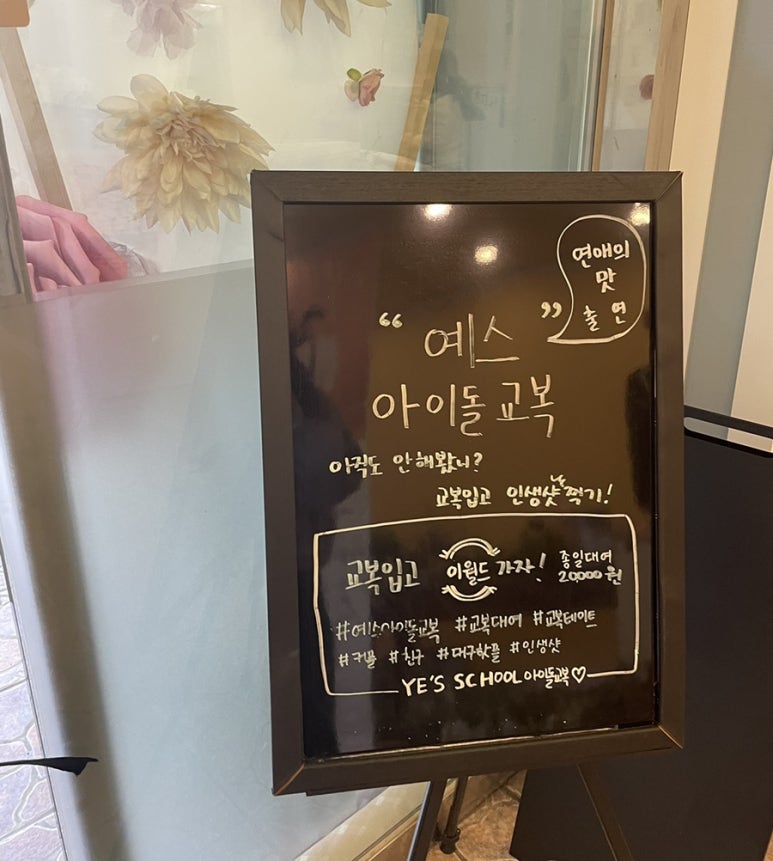 연애의
맛
출연
“ 예스 ”
아이돌교복
아직도 안해봤니?
교복입고 인생샷 찍기!
교복입고 이월드 가자! 종일대여
20,000원
#예스아이돌교복 #교복대여 #교복데이트
#커플 #친구 #대구핫플 #인생샷
YE'S SCHOOL 아이돌교복♡